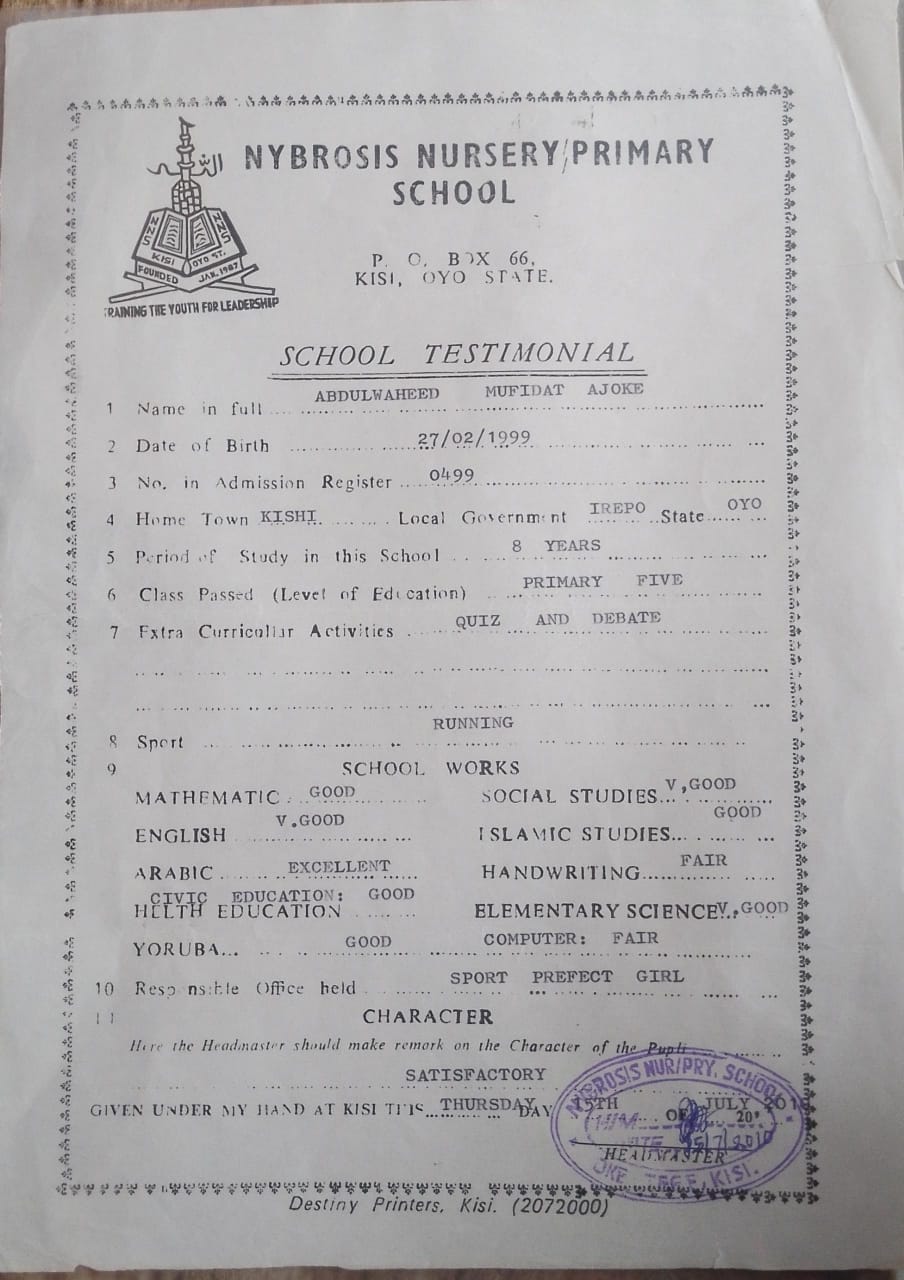 NYBROSIS NURSERY/PRIMARY
SCHOOL
NNS NNS
KISI OYO ST.
FOUNDED JAN. 1987
TRAINING THE YOUTH FOR LEADERSHIP
P. O. BOX 66,
KISI, OYO STATE.
SCHOOL TESTIMONIAL
1 Name in full ABDULWAHEED MUFIDAT AJOKE
2 Date of Birth 27/02/1999
3 No. in Admission Register 0499
4 Home Town KISHI. Local Government IREPO State OYO
5 Period of Study in this School 8 YEARS
6 Class Passed (Level of Education) PRIMARY FIVE
7 Extra Curricular Activities QUIZ AND DEBATE
8 Sport RUNNING
9 SCHOOL WORKS
MATHEMATIC GOOD SOCIAL STUDIES V,GOOD
ENGLISH V.GOOD ISLAMIC STUDIES GOOD
ARABIC EXCELLENT HANDWRITING FAIR
CIVIC EDUCATION: GOOD
HELTH EDUCATION ELEMENTARY SCIENCE V.GOOD
YORUBA GOOD COMPUTER: FAIR
10 Responsible Office held SPORT PREFECT GIRL
11 CHARACTER
Here the Headmaster should make remark on the Character of the Pupil
SATISFACTORY
GIVEN UNDER MY HAND AT KISI THIS THURSDAY DAY 15TH OF JULY 20
HEADMASTER
NYBROSIS NUR/PRY. SCHOOL
H/M
DATE 15/7/2010
KISI.
Destiny Printers, Kisi. (2072000)